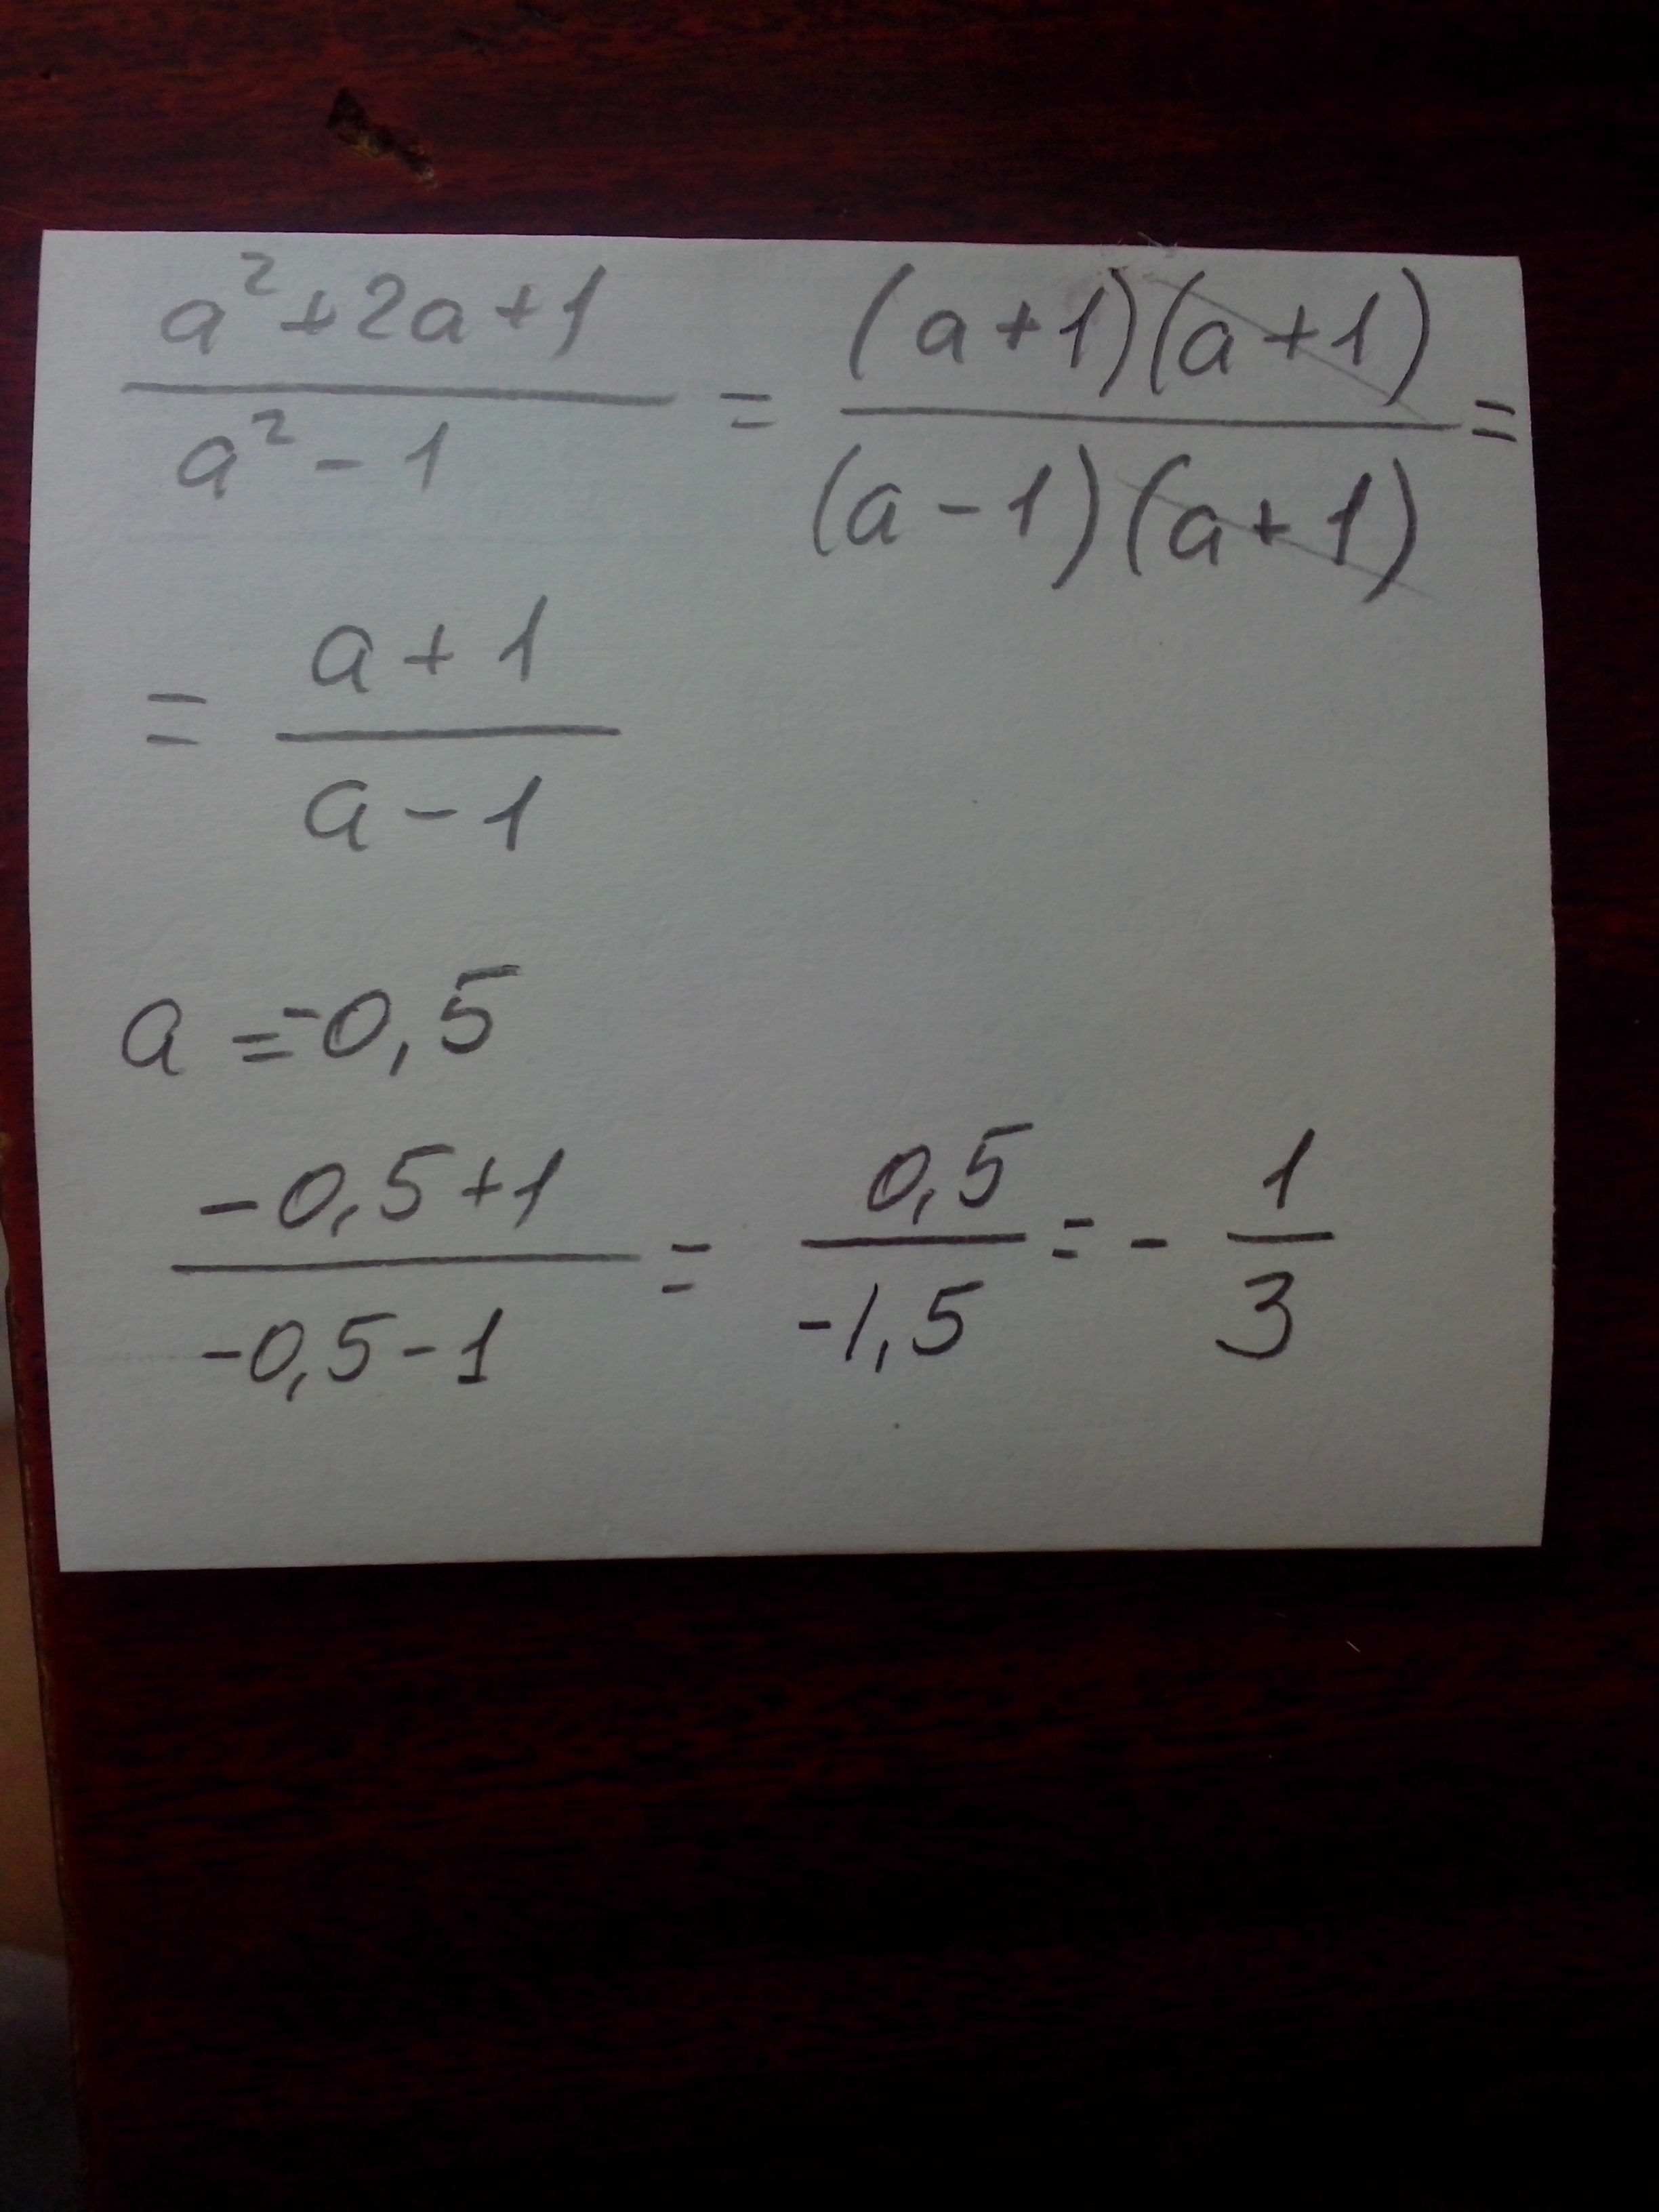 (a²+2a+1)/(a²-1) = ((a+1)(a+1))/((a-1)(a+1)) =
= (a+1)/(a-1)
a = -0,5
(-0,5+1)/(-0,5-1) = 0,5/-1,5 = - 1/3